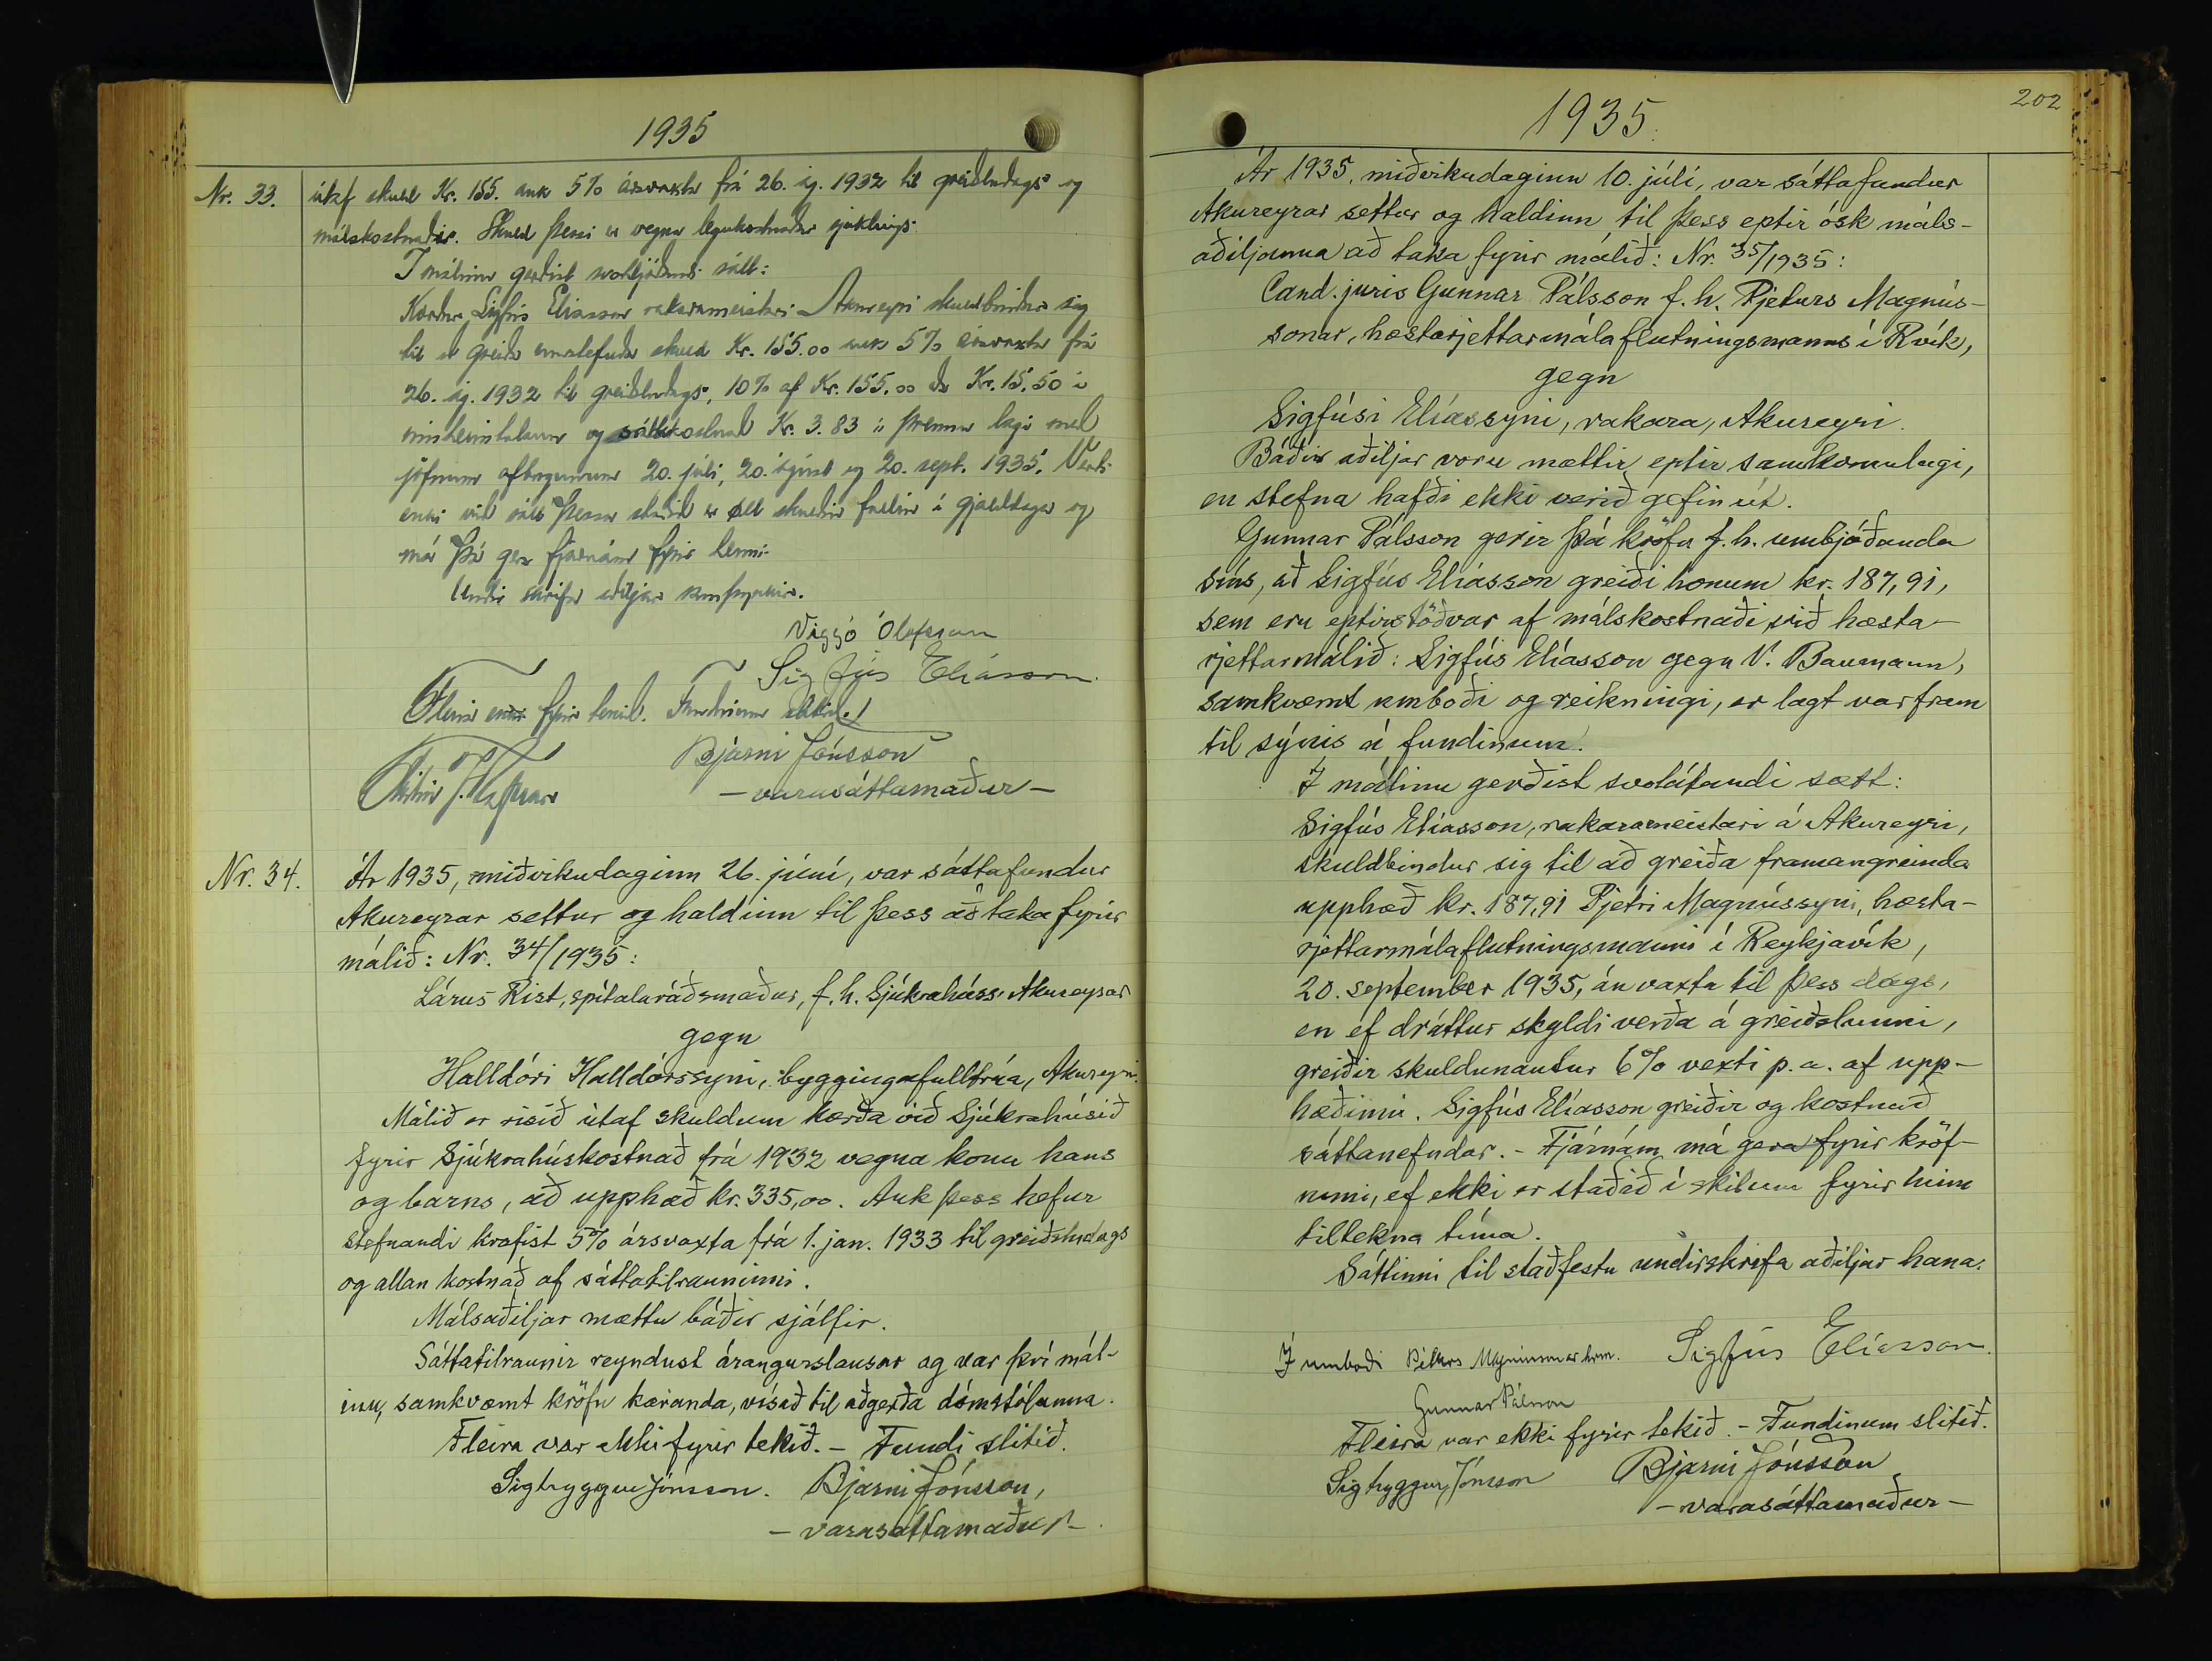 1935
Nr. 33. útaf skuld Kr. 155. auk 5% ársvaxta frá 26. ág. 1932 til greiðsludags og
málskostnaðar. Skuld þessi er vegna legukostnaðar sjúklings.
Í málinu gerðist svohljóðandi sátt:
Kærður Sigfús Elíasson rakarameistari Akureyri skuldbindur sig
til að greiða umstefnda skuld Kr. 155.00 auk 5% ársvaxta frá
26. ág. 1932 til greiðsludags, 10% af Kr. 155.00 eða Kr. 15.50 í
innheimtulaun og sáttakostnað Kr. 3.83 í þrennu lagi með
jöfnum afborgunum 20. júlí, 20. ágúst og 20. sept. 1935. Verði
ekki við sátt þessa staðið er öll skuldin fallin í gjalddaga og
má þá gera fjárnám fyrir henni.
Undir skrifa aðiljar samþykkir.
Viggó Ólafsson
Sigfús Elíasson.
Fleira ekki fyrir tekið. Fundinum slitið.
Bjarni Jónsson
- varasáttamaður -
Nr. 34. Ár 1935, miðvikudaginn 26. júní, var sáttafundur
Akureyrar settur og haldinn til þess að taka fyrir
málið: Nr. 34/1935:
Lárus Rist, spítalaráðsmaður, f. h. Sjúkrahúss Akureyrar
gegn
Halldóri Halldórssyni, byggingafulltrúa, Akureyri.
Málið er risið útaf skuldum kærða við Sjúkrahúsið
fyrir Sjúkrahúskostnað frá 1932 vegna konu hans
og barns, að upphæð kr. 335,00. Auk þess hefur
stefnandi krafist 5% ársvaxta frá 1. jan. 1933 til greiðsludags
og allan kostnað af sáttatilrauninni.
Málsaðiljar mættu báðir sjálfir.
Sáttatilraunir reyndust árangurslausar og var því mál-
inu, samkvæmt kröfu kæranda, vísað til aðgerða dómstólanna.
Fleira var ekki fyrir tekið. - Fundi slitið.
Sigtryggur Jónsson. Bjarni Jónsson,
- varasáttamaður -
202
1935.
Ár 1935, miðvikudaginn 10. júlí, var sáttafundur
Akureyrar settur og haldinn til þess eptir ósk máls-
aðiljanna að taka fyrir málið: Nr. 35/1935:
Cand. juris Gunnar Pálsson f. h. Pjeturs Magnús-
sonar, hæstarjettarmálaflutningsmanns í Rvík,
gegn
Sigfúsi Elíassyni, rakara, Akureyri.
Báðir aðiljar voru mættir eptir samkomulagi,
en stefna hafði ekki verið gefin út.
Gunnar Pálsson gerir þá kröfu f. h. umbjóðanda
síns, að Sigfús Elíasson greiði honum kr. 187,91,
sem eru eptirstöðvar af málskostnaði við hæsta-
rjettarmálið: Sigfús Elíasson gegn V. Baumann,
samkvæmt umboði og reikningi, er lagt var fram
til sýnis á fundinum.
Í málinu gerðist svolátandi sætt:
Sigfús Elíasson, rakarameistari á Akureyri,
skuldbindur sig til að greiða framangreinda
upphæð kr. 187,91 Pjetri Magnússyni, hæsta-
rjettarmálaflutningsmanni í Reykjavík,
20. september 1935, án vaxta til þess dags,
en ef dráttur skyldi verða á greiðslunni,
greiðir skuldunautur 6% vexti p. a. af upp-
hæðinni. Sigfús Elíasson greiðir og kostnað
sáttanefndar. - Fjárnám má gera fyrir kröf-
unni, ef ekki er staðið í skilum fyrir hinn
tiltekna tíma.
Sáttinni til staðfestu undirskrifa aðiljar hana.
Í umboði Péturs Magnússonar hrm. Sigfús Elíasson.
Gunnar Pálsson
Fleira var ekki fyrir tekið. - Fundinum slitið.
Sigtryggur Jónsson Bjarni Jónsson
- varasáttamaður -